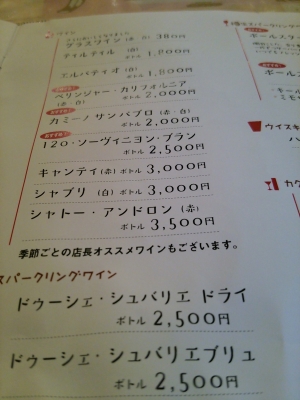 ワイン
グラスワイン (赤・白) 380円
ティルティル (白) 1,800円
エルパティオ (白) 1,800円
ベリンジャー・カリフォルニア
(赤・白) ボトル 2,000円
カミーノ サンパブロ (赤・白)
ボトル 2,000円
120・ソーヴィニヨン・ブラン
ボトル 2,500円
キャンティ(赤) ボトル 3,000円
シャブリ (白) ボトル 3,000円
シャトー・アンドロン (赤)
ボトル 3,500円
季節ごとの店長オススメワインもございます。
スパークリングワイン
ドゥーシェ・シュバリエ ドライ
ボトル 2,500円
ドゥーシェ・シュバリエブリュ
ボトル 2,500円
ボールスター
ボール
・キール
・ミモ
ウイスキ
ハ
カク